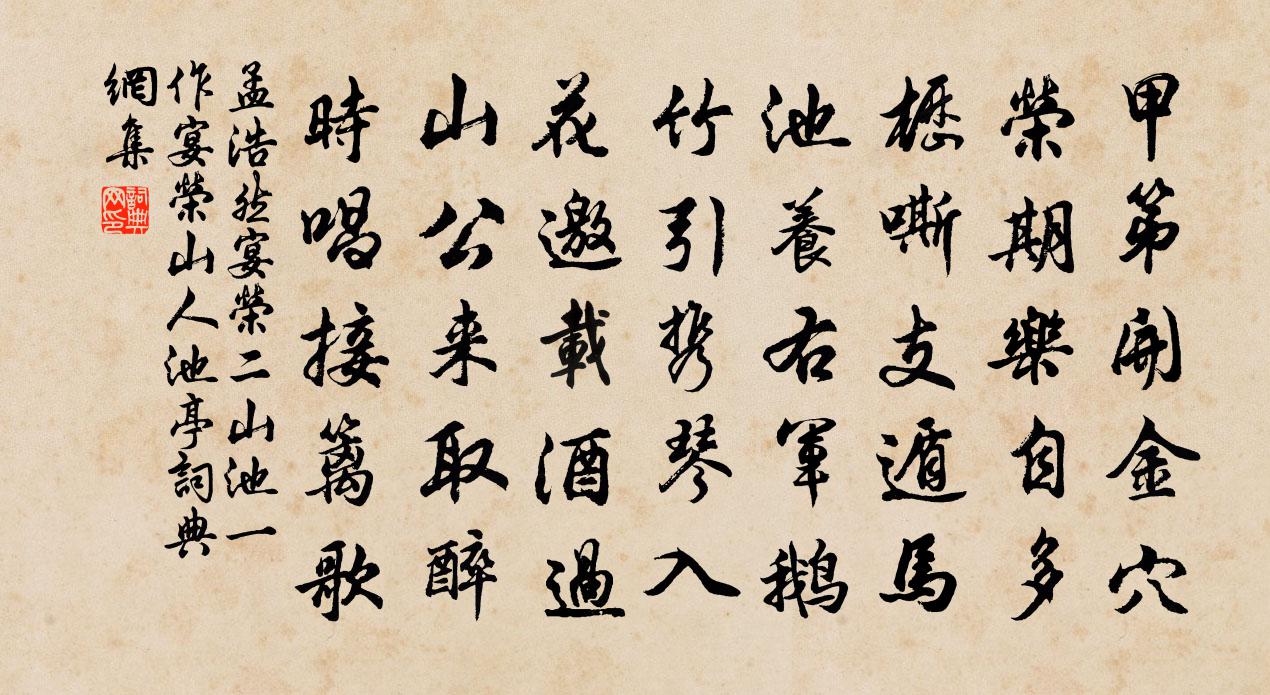 甲第開金穴
榮期樂自多
櫪嘶支遁馬
池養右軍鵝
竹引携琴入
花邀載酒過
山公来取醉
時唱接篱歌
孟浩然宴榮二山池一
作宴榮山人池亭詞典
網集
詞典網印